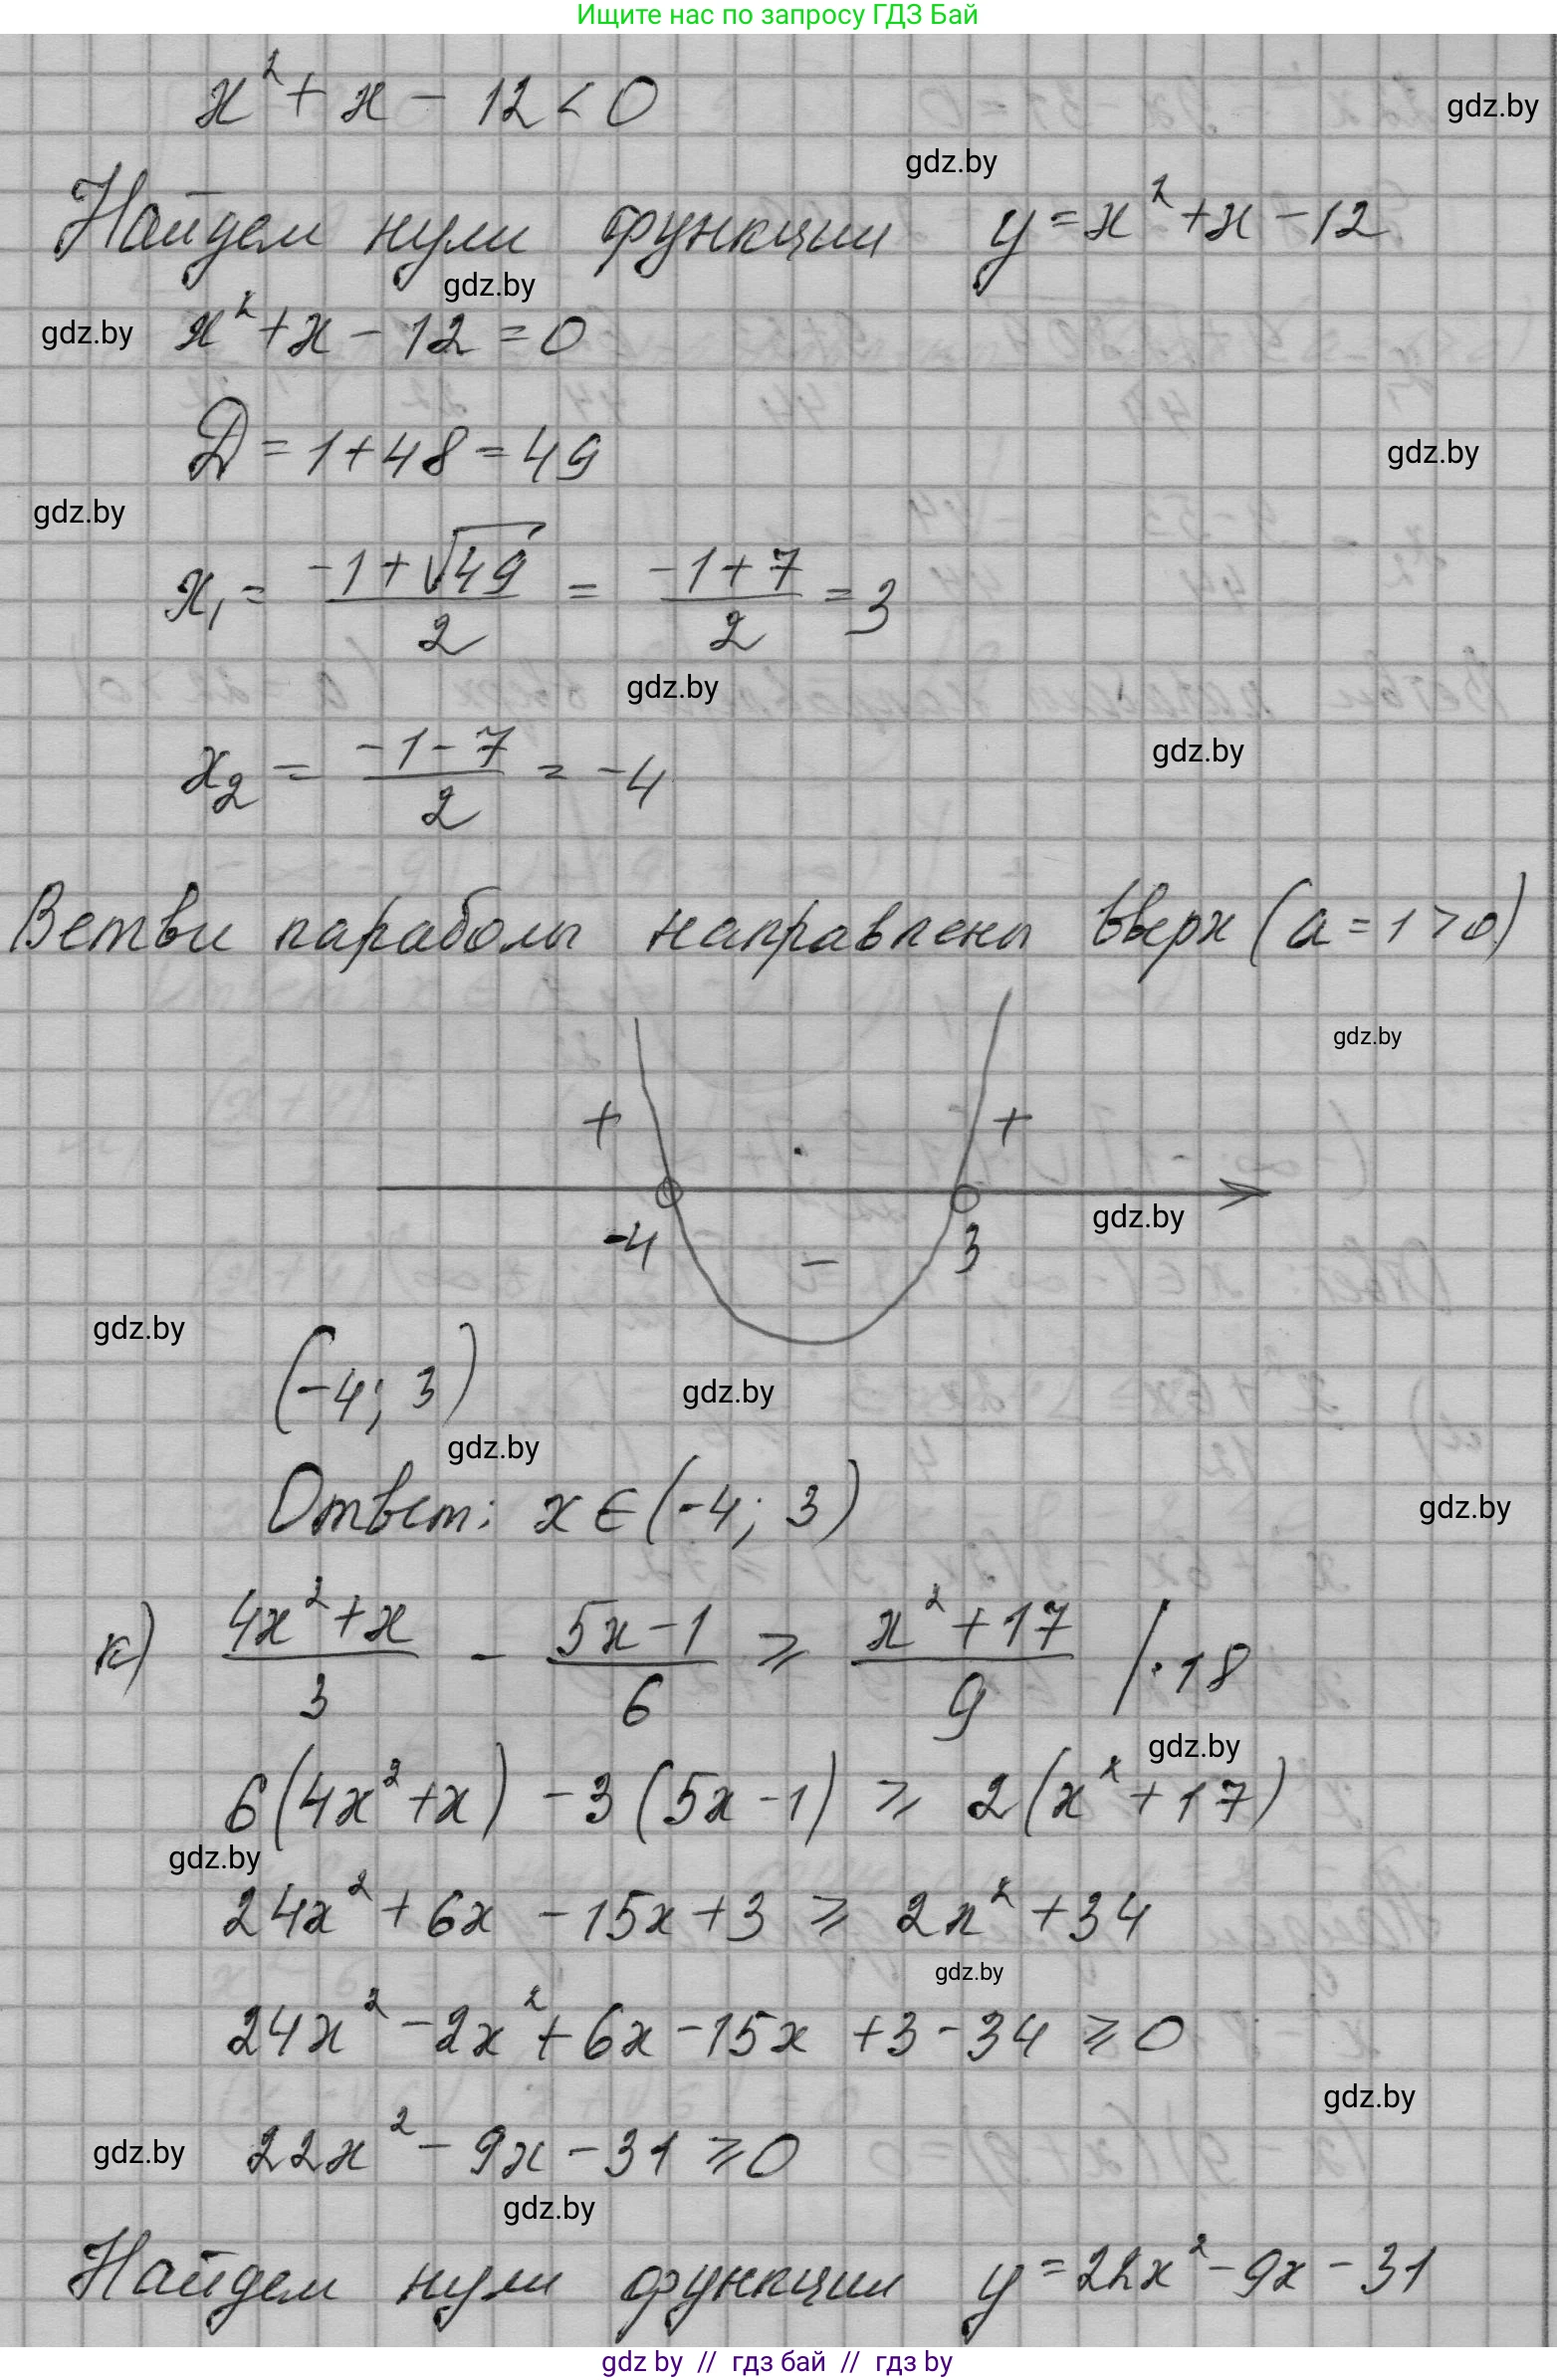 Ищите нас по запросу ГДЗ Бай
x² + x - 12 < 0
gdz.by
gdz.by
Найдем нули функции y = x² + x - 12
gdz.by
gdz.by
x² + x - 12 = 0
D = 1 + 48 = 49
gdz.by
gdz.by
x₁ = (-1 + √49)/2 = (-1 + 7)/2 = 3
gdz.by
gdz.by
x₂ = (-1 - 7)/2 = -4
Ветви параболы направлены вверх (a = 1 > 0)
gdz.by
+ +
gdz.by
-4 - 3
gdz.by
(-4; 3)
gdz.by
gdz.by
Ответ: x ∈ (-4; 3)
gdz.by
к) (4x² + x)/3 - (5x - 1)/6 ⩾ (x² + 17)/9 /·18
gdz.by
6(4x² + x) - 3(5x - 1) ⩾ 2(x² + 17)
gdz.by
24x² + 6x - 15x + 3 ⩾ 2x² + 34
gdz.by
24x² - 2x² + 6x - 15x + 3 - 34 ⩾ 0
gdz.by
gdz.by
22x² - 9x - 31 ⩾ 0
gdz.by
Найдем нули функции y = 22x² - 9x - 31
gdz by // гдз бай // гдз by